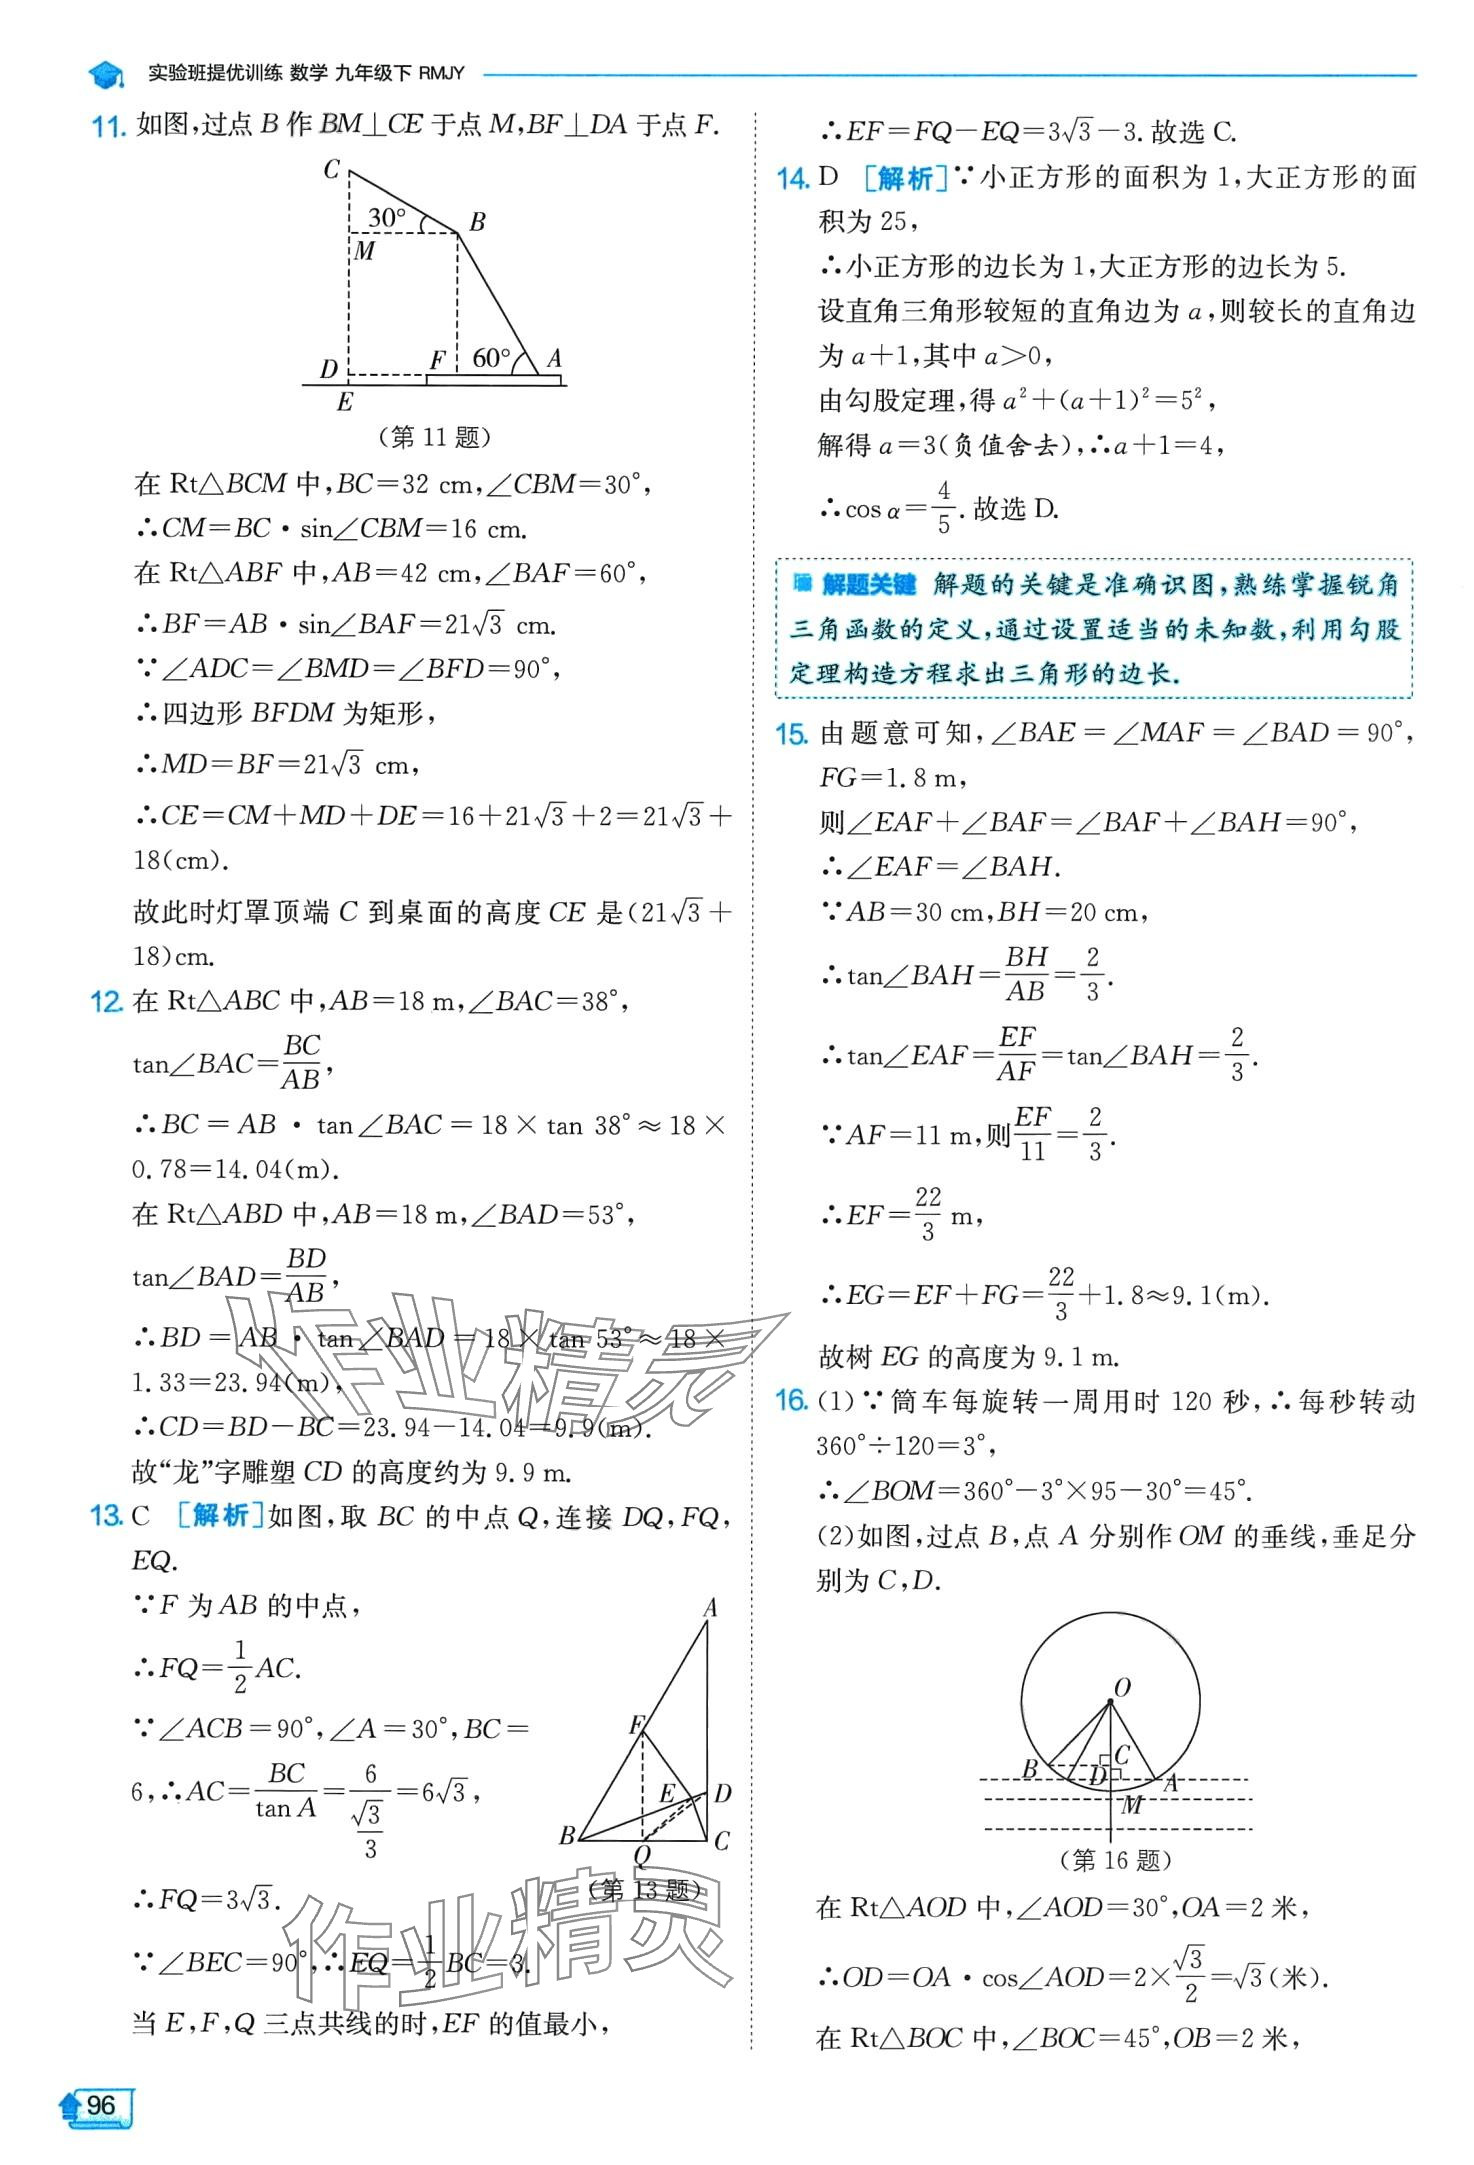 实验班提优训练 数学 九年级下 RMJY
11. 如图,过点 B 作 BM⊥CE 于点 M,BF⊥DA 于点 F.
C
30°
B
M
D
F
60°
A
E
(第 11 题)
在 Rt△BCM 中,BC=32 cm,∠CBM=30°,
∴CM=BC·sin∠CBM=16 cm.
在 Rt△ABF 中,AB=42 cm,∠BAF=60°,
∴BF=AB·sin∠BAF=21√3 cm.
∵∠ADC=∠BMD=∠BFD=90°,
∴四边形 BFDM 为矩形,
∴MD=BF=21√3 cm,
∴CE=CM+MD+DE=16+21√3+2=21√3+
18(cm).
故此时灯罩顶端 C 到桌面的高度 CE 是(21√3+
18)cm.
12. 在 Rt△ABC 中,AB=18 m,∠BAC=38°,
tan∠BAC=BC/AB,
∴BC=AB·tan∠BAC=18×tan 38°≈18×
0.78=14.04(m).
在 Rt△ABD 中,AB=18 m,∠BAD=53°,
tan∠BAD=BD/AB,
∴BD=AB·tan∠BAD=18×tan 53°≈18×
1.33=23.94(m),
∴CD=BD-BC=23.94-14.04=9.9(m).
故“龙”字雕塑 CD 的高度约为 9.9 m.
13. C [解析]如图,取 BC 的中点 Q,连接 DQ,FQ,
EQ.
∵F 为AB 的中点,
∴FQ=1/2 AC.
∵∠ACB=90°,∠A=30°,BC=
6,∴AC=BC/tan A=6/(√3/3)=6√3,
∴FQ=3√3.
∵∠BEC=90°,∴EQ=1/2 BC=3.
当 E,F,Q 三点共线的时,EF 的值最小,
A
F
E
D
B
Q
C
(第 13 题)
作业精灵
作业精灵
96
∴EF=FQ-EQ=3√3-3.故选 C.
14. D [解析]∵小正方形的面积为 1,大正方形的面
积为 25,
∴小正方形的边长为 1,大正方形的边长为 5.
设直角三角形较短的直角边为 a,则较长的直角边
为 a+1,其中 a>0,
由勾股定理,得 a²+(a+1)²=5²,
解得 a=3(负值舍去),∴a+1=4,
∴cos α=4/5.故选 D.
解题关键 解题的关键是准确识图,熟练掌握锐角
三角函数的定义,通过设置适当的未知数,利用勾股
定理构造方程求出三角形的边长.
15. 由题意可知,∠BAE=∠MAF=∠BAD=90°,
FG=1.8 m,
则∠EAF+∠BAF=∠BAF+∠BAH=90°,
∴∠EAF=∠BAH.
∵AB=30 cm,BH=20 cm,
∴tan∠BAH=BH/AB=2/3.
∴tan∠EAF=EF/AF=tan∠BAH=2/3.
∵AF=11 m,则EF/11=2/3.
∴EF=22/3 m,
∴EG=EF+FG=22/3+1.8≈9.1(m).
故树 EG 的高度为 9.1 m.
16. (1)∵筒车每旋转一周用时 120 秒,∴每秒转动
360°÷120=3°,
∴∠BOM=360°-3°×95-30°=45°.
(2)如图,过点 B,点 A 分别作OM 的垂线,垂足分
别为 C,D.
O
B
C
D
A
M
(第 16 题)
在 Rt△AOD 中,∠AOD=30°,OA=2 米,
∴OD=OA·cos∠AOD=2×√3/2=√3(米).
在 Rt△BOC 中,∠BOC=45°,OB=2 米,